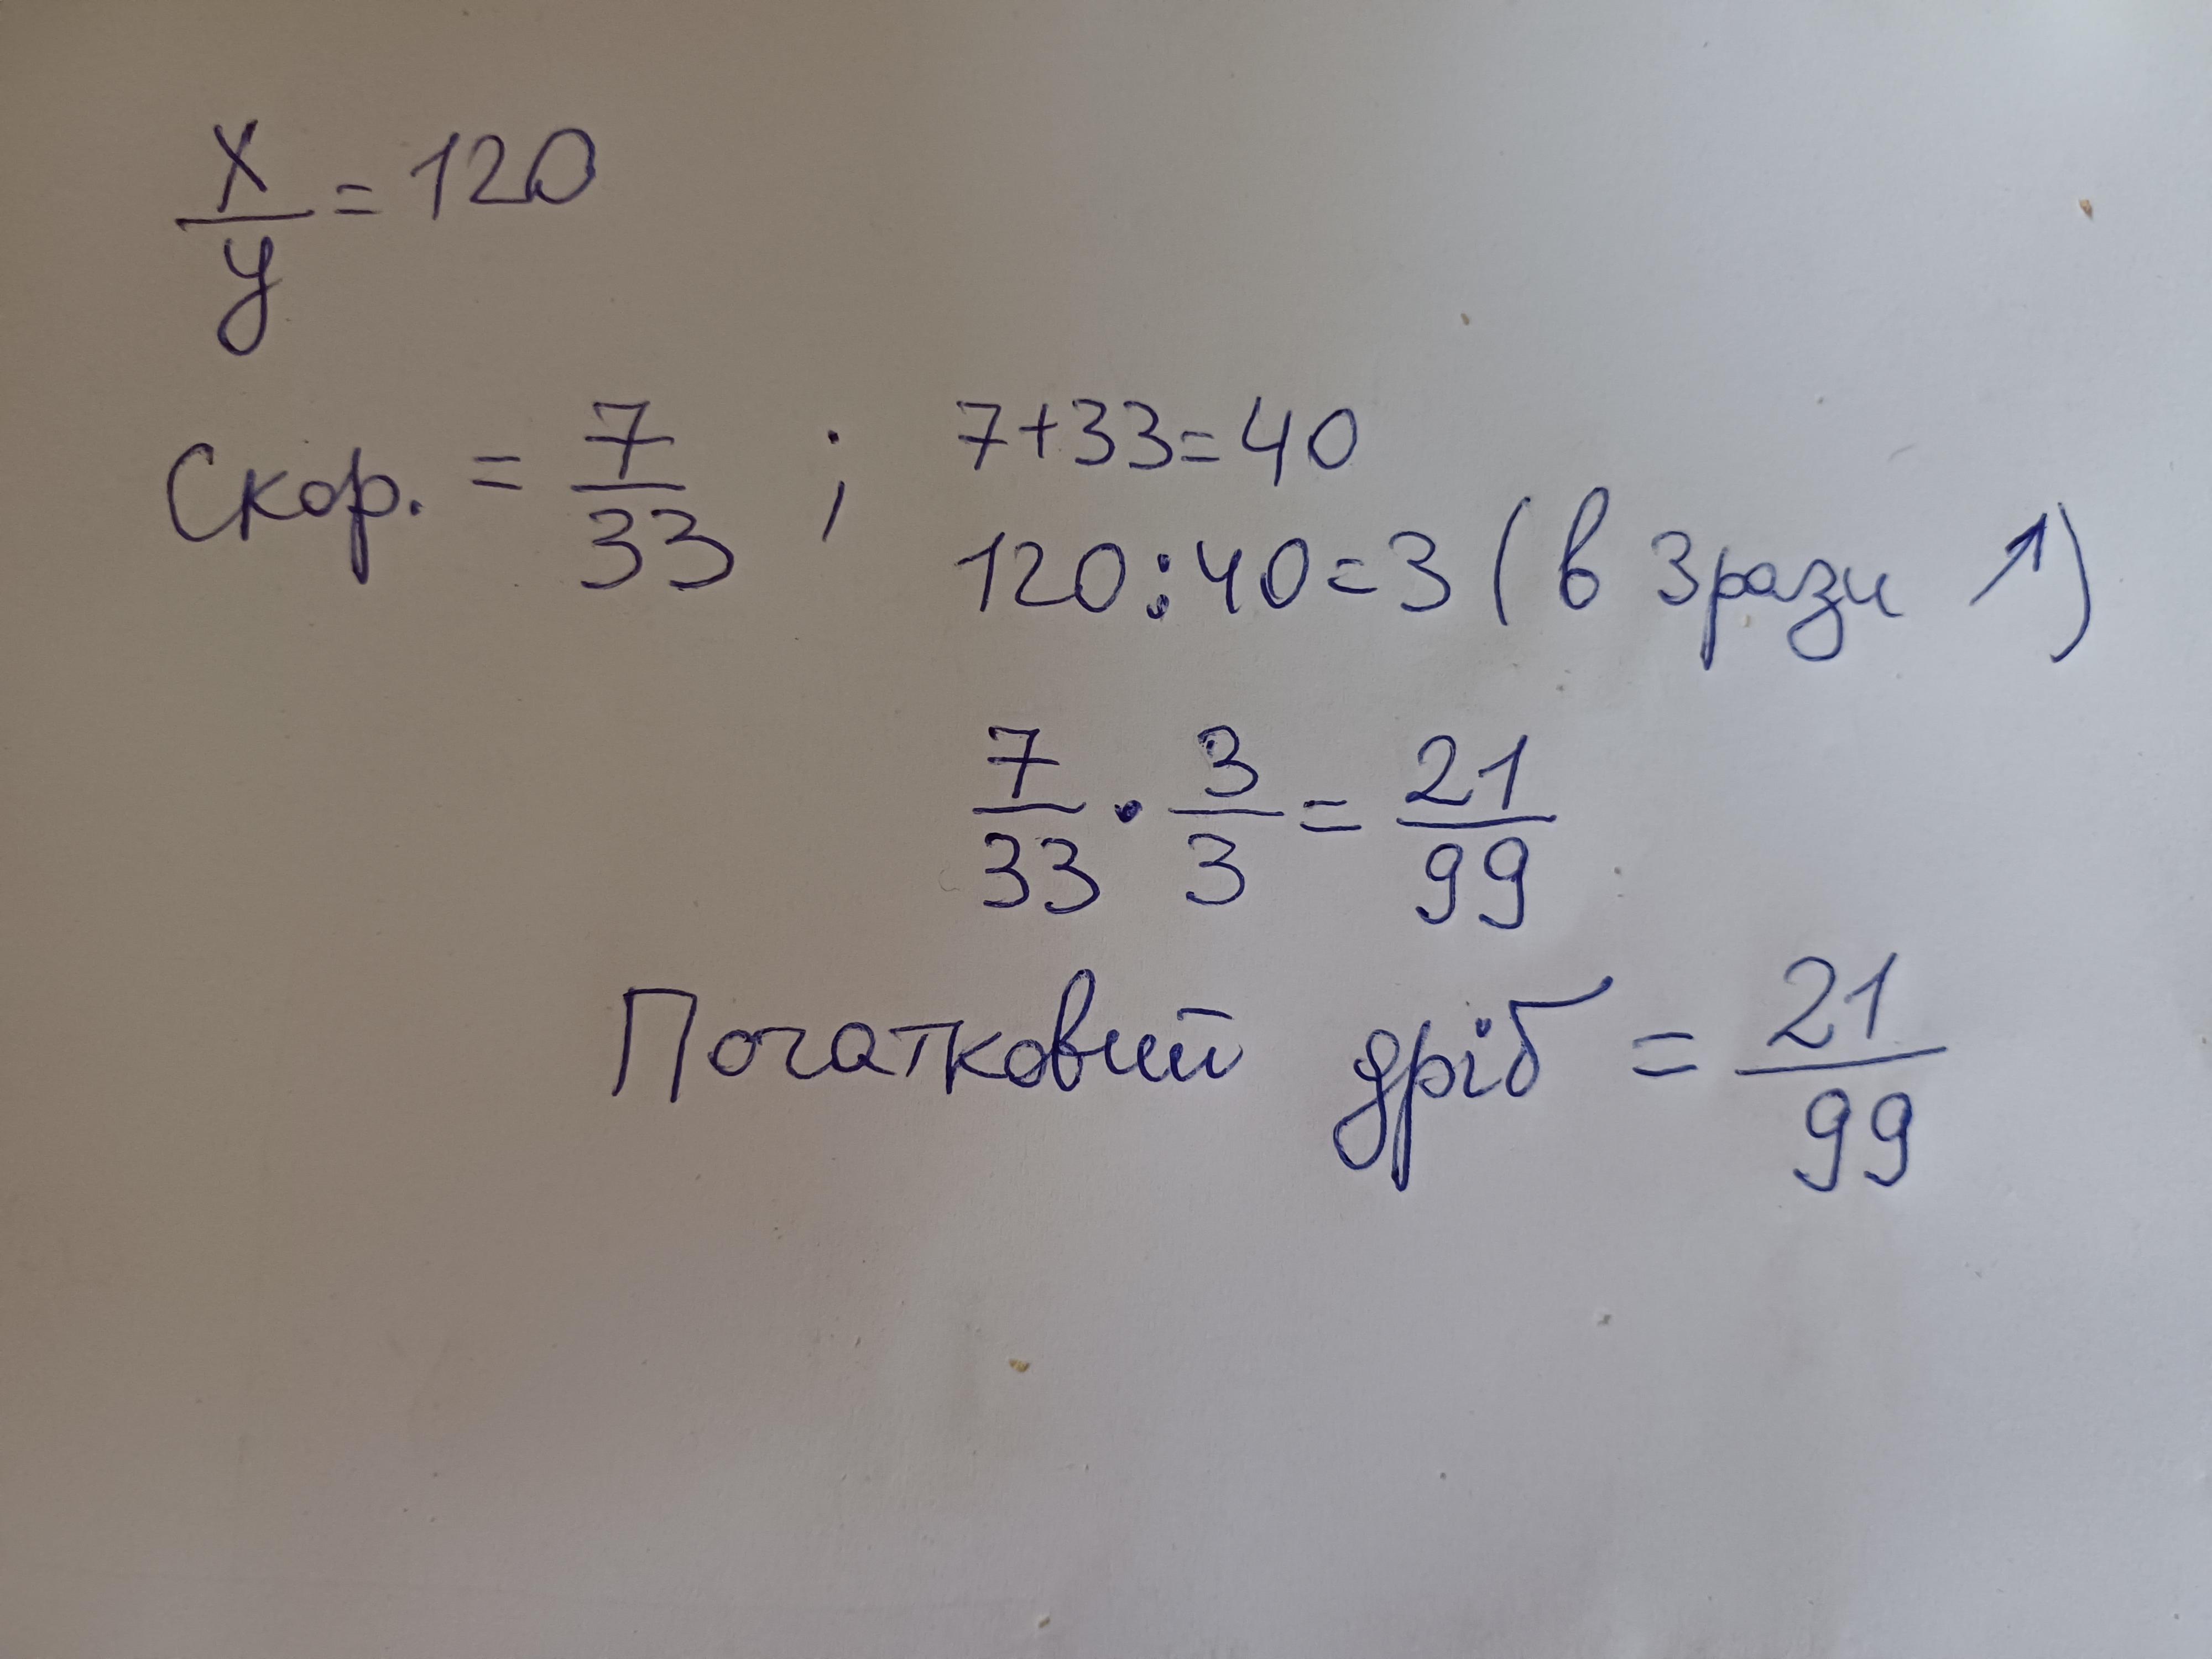 x/y = 120
Скор. = 7/33 ; 7+33=40
120:40=3 (в 3 рази ↑)
7/33 · 3/3 = 21/99
Початковий дріб = 21/99